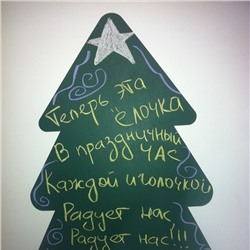 Теперь эта
ёлочка
В праздничный
час
Каждой иголочкой
Радует нас
Радует нас!!!